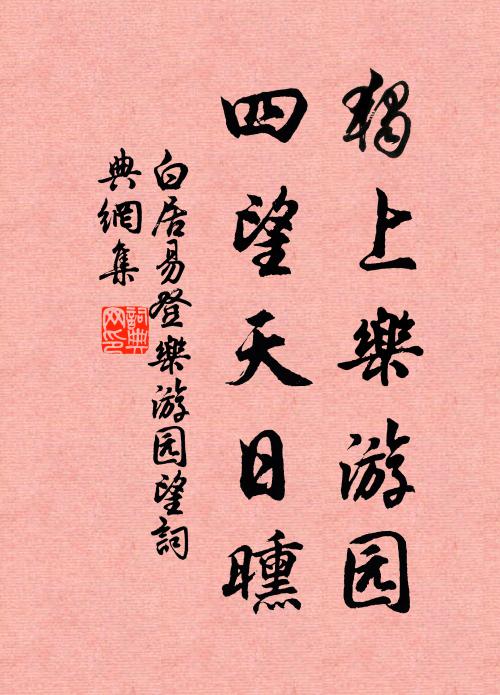 獨上樂游园
四望天日曛
白居易登樂游园望詞
典網集
詞典
网印